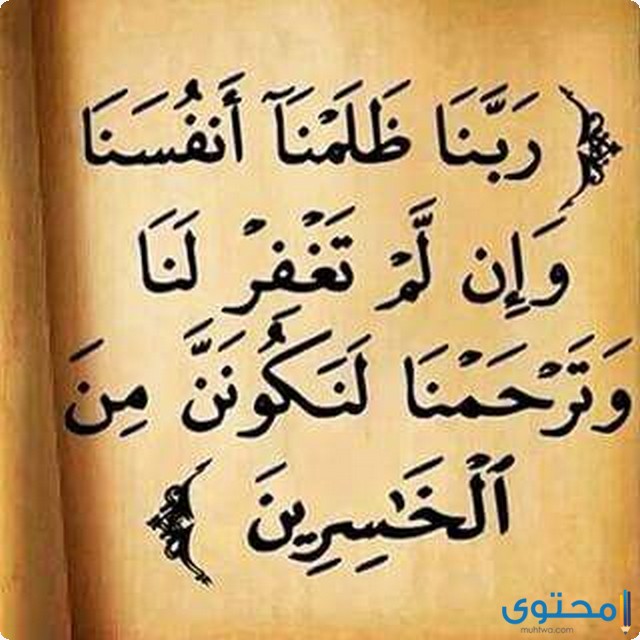 ﴿ رَبَّنَا ظَلَمْنَآ أَنفُسَنَا
وَإِن لَّمْ تَغْفِرْ لَنَا
وَتَرْحَمْنَا لَنَكُونَنَّ مِنَ
ٱلْخَٰسِرِينَ ﴾
محتوى
muhtwa.com